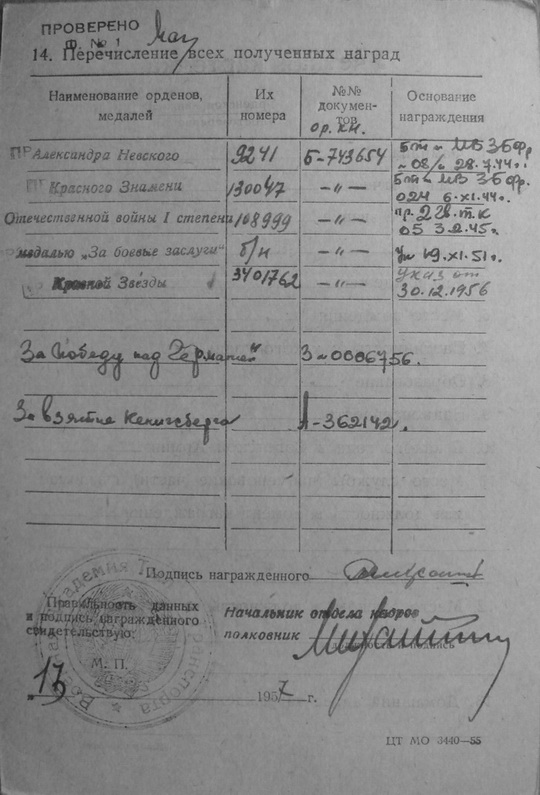 ПРОВЕРЕНО
Ф. № 1
14. Перечисление всех полученных наград
Наименование орденов, медалей
Их номера
№№ документов
ор. кн.
Основание награждения
Александра Невского 9241 Б-743654 28.7.44г.
Красного Знамени 130047 -〃- 024 6.XI.44г.
Отечественной войны I степени 108999 -〃- 05 3.2.45г.
медалью „За боевые заслуги" б/н -〃- 19.XI.51г.
Красной Звезды 3401762 -〃- Указ от 30.12.1956
За победу над Германией З №0006756.
За взятие Кенигсберга А-362142.
Подпись награжденного
Правильность данных
и подпись награжденного
свидетельствую:
Начальник отдела кадров
полковник
М. П.
13 1957 г.
ЦТ МО 3440—55